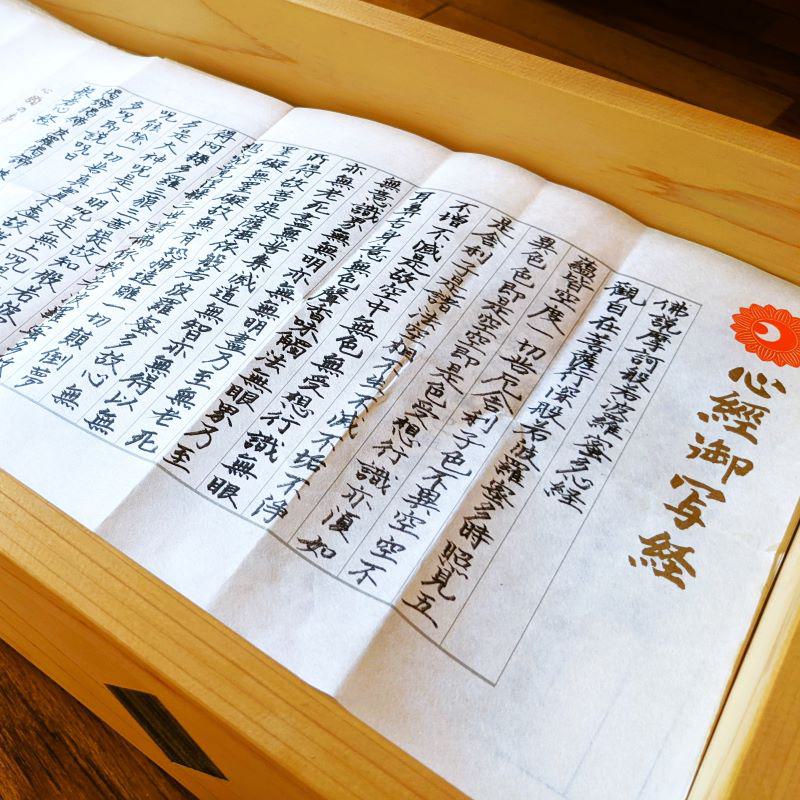 心經御写経
佛說摩訶般若波羅蜜多心経
観自在菩薩行深般若波羅蜜多時照見五
蘊皆空度一切苦厄舎利子色不異空空不
異色色即是空空即是色受想行識亦復如
是舎利子是諸法空相不生不滅不垢不淨
不增不減是故空中無色無受想行識無眼
耳鼻舌身意無色聲香味觸法無眼界乃至
無意識界無無明亦無無明盡乃至無老死
亦無老死盡無苦集滅道無智亦無得以
所得故菩提薩埵依般若波羅蜜多故心無
罣礙無罣礙故無有恐怖遠離一切顛倒夢
三世諸佛依般若波羅蜜多故
得阿耨多羅三藐三
多是大神呪是大明呪是無上呪
呪能除一切苦真實不虛故
多呪即說呪曰
羯諦羯諦
般若心経